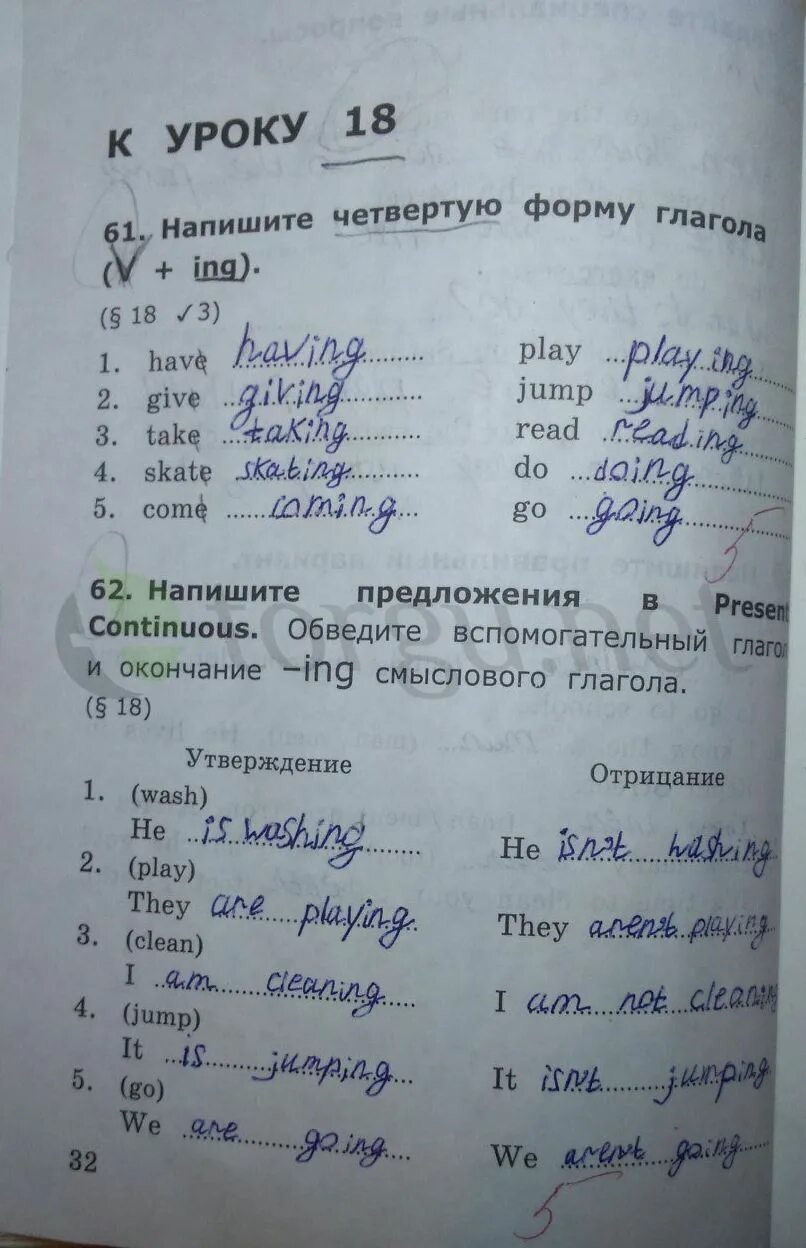 К УРОКУ 18
61. Напишите четвертую форму глагола
(V + ing).
(§ 18 ✓3)
1. have having play playing
2. give giving jump jumping
3. take taking read reading
4. skate skating do doing
5. come coming go going
5
62. Напишите предложения в Present
Continuous. Обведите вспомогательный глагол
и окончание –ing смыслового глагола.
(§ 18)
Утверждение Отрицание
1. (wash)
He is washing He isn't washing
2. (play)
They are playing They aren't playing
3. (clean)
I am cleaning I am not cleaning
4. (jump)
It is jumping It isn't jumping
5. (go)
We are going We aren't going
32
5